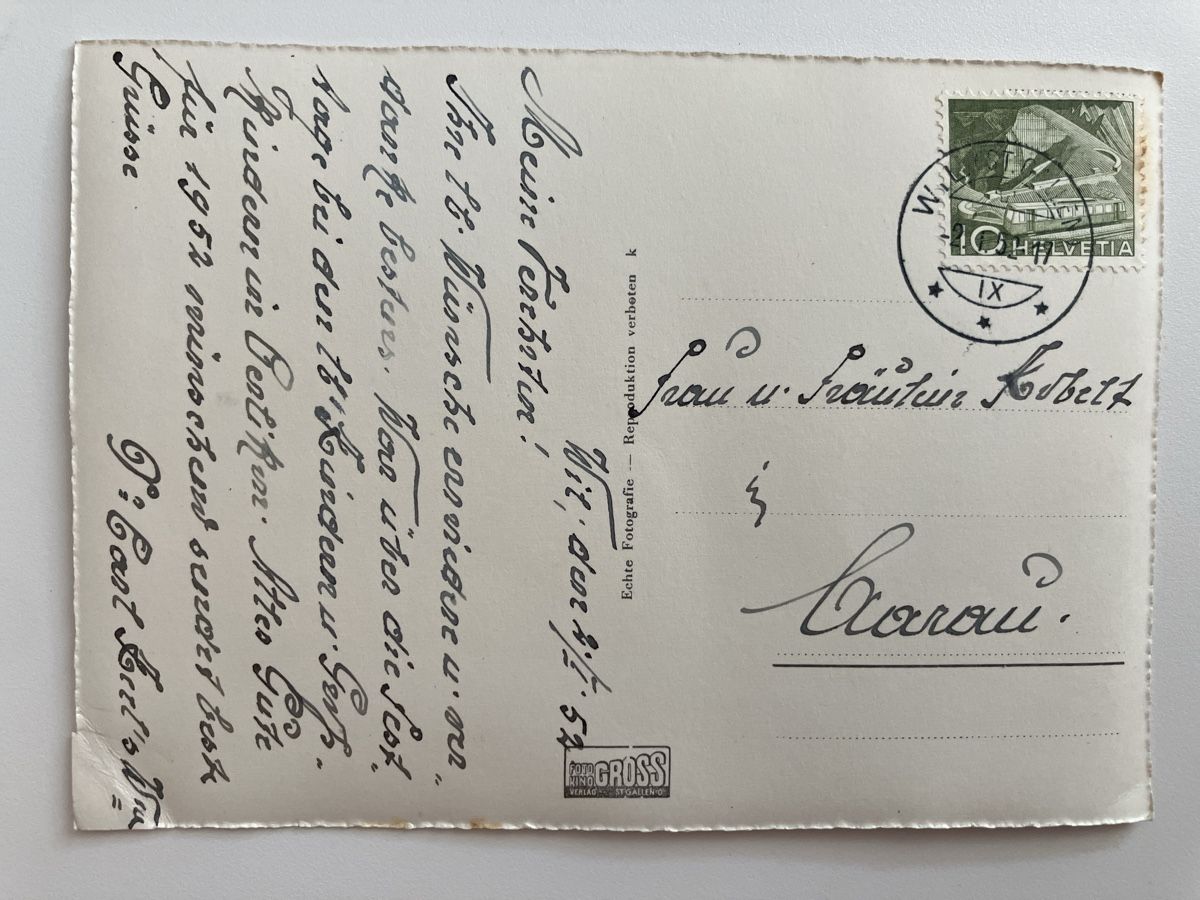 Wil, den 2/I. 52
Meine Verehrten!
Ihre lb. Wünsche erwidere u. ver„
danke bestens. War über die Fest„
tage bei den lb. Kindern u. Groß„
Kindern in Oerlikon. Alles Gute
für 1952 wünschend sendet beste
Grüsse
Echte Fotografie — Reproduktion verboten k
FOTO KINO GROSS
VERLAG ST. GALLEN-O
HELVETIA
10
2.I.52 17
IX
Frau u. Fräulein Kobelt
Aarau.